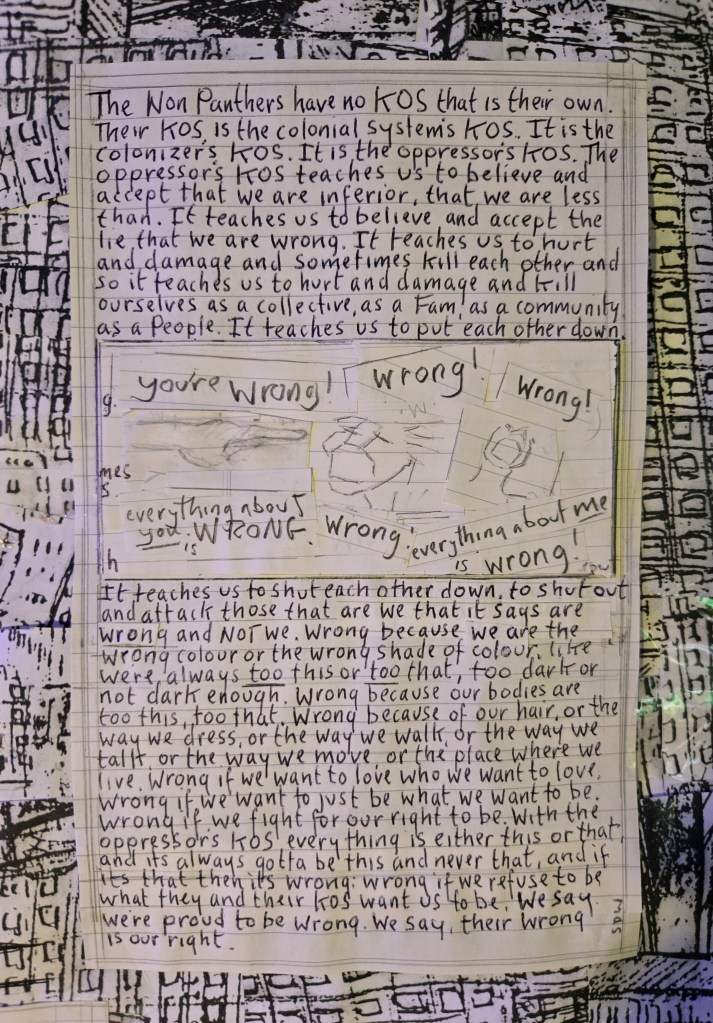 The Non Panthers have no KOS that is their own.
Their KOS, is the colonial system's KOS. It is the
colonizer's KOS. It is the oppressor's KOS. The
oppressor's KOS teaches us to believe and
accept that we are inferior, that we are less
than. It teaches us to believe and accept the
lie, that we are wrong. It teaches us to hurt
and damage and sometimes kill each other and
so it teaches us to hurt and damage and kill
ourselves as a collective, as a Fam, as a community
as a People. It teaches us to put each other down.
you're wrong! wrong! Wrong!
g.
mes
s.
everything about
you is WRONG.
Wrong!
everything about me
is wrong!
h
It teaches us to shut each other down, to shut out
and attack those that are we that it says are
wrong and NOT we. Wrong because we are the
wrong colour or the wrong shade of colour, like
were, always too this or too that, too dark or
not dark enough. Wrong because our bodies are
too this, too that. Wrong because of our hair, or the
way we dress, or the way we walk, or the way we
talk, or the way we move, or the place where we
live. Wrong if we want to love who we want to love.
Wrong if we want to just be what we want to be.
Wrong if we fight for our right to be. With the
oppressor's KOS everything is either this or that,
and its always gotta be this and never that, and if
its that then it's wrong: wrong if we refuse to be
what they and their KOS want us to be. We say
we're proud to be wrong. We say, their wrong
is our right.